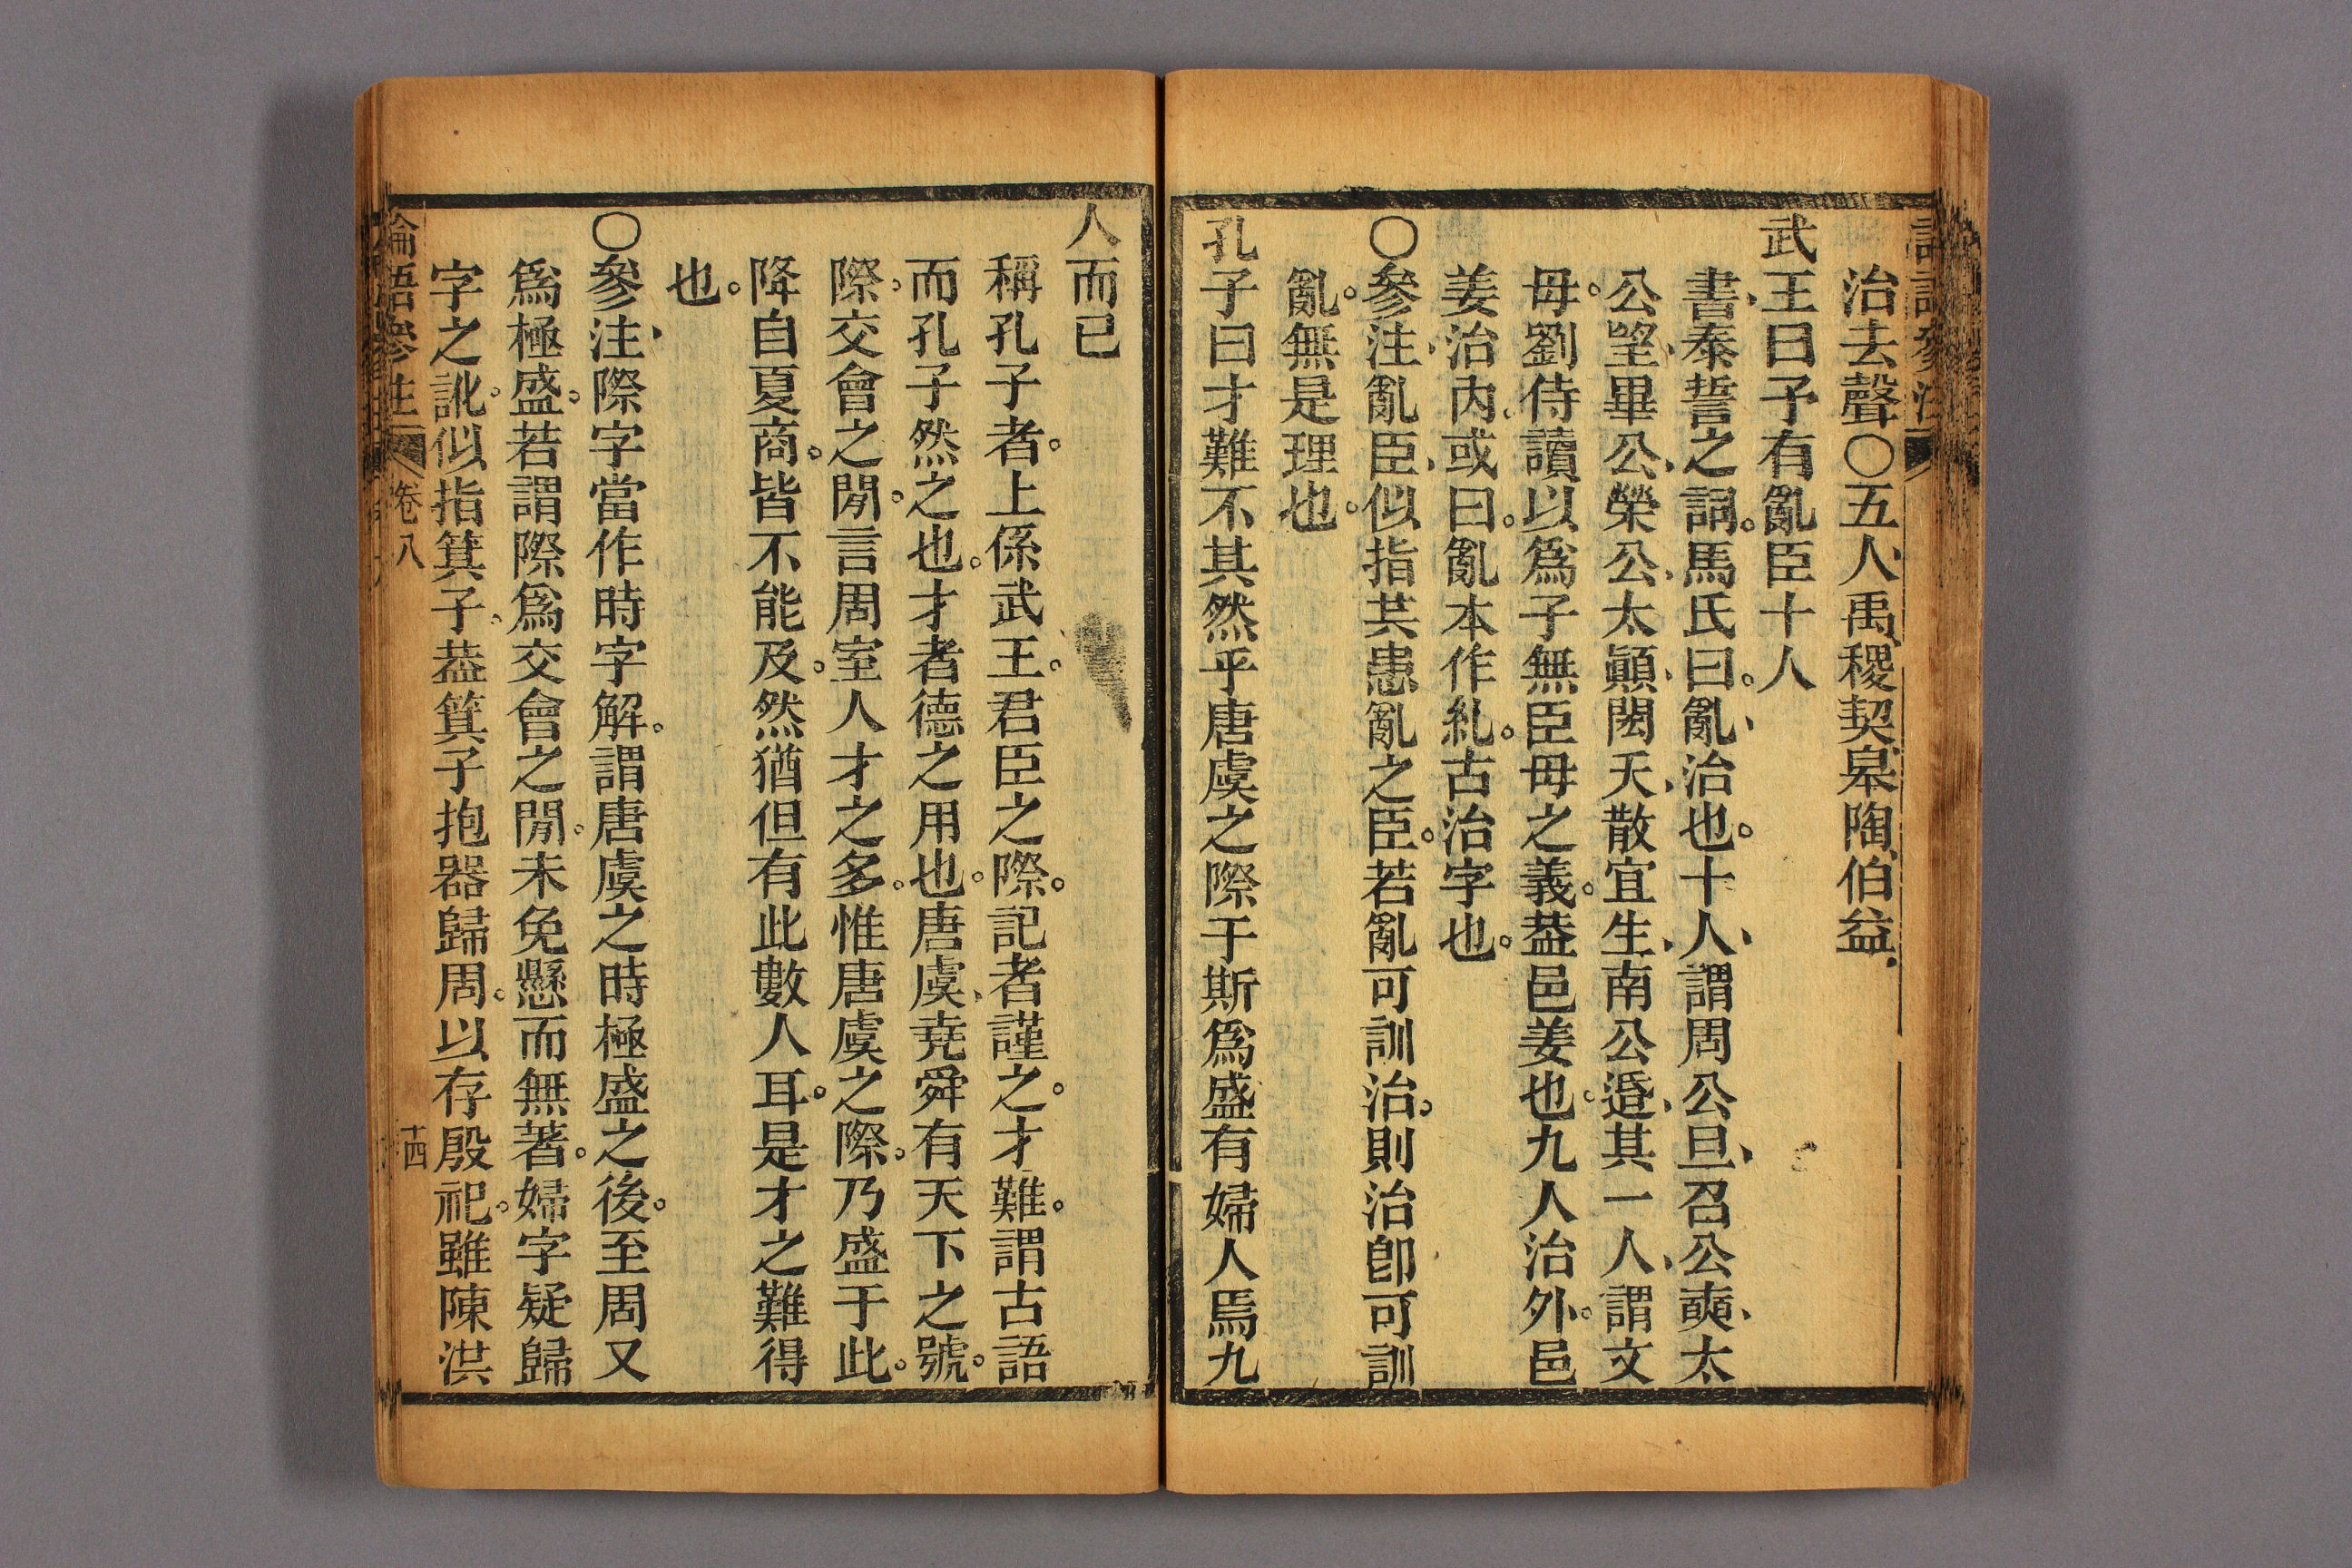 治去聲〇五人禹、稷、契、皋陶、伯益、
武王曰予有亂臣十人
書、泰誓之詞。馬氏曰。亂、治也。十人、謂周公旦、召公奭、太
公望、畢公、榮公、太顚、閎夭、散宜生、南公适、其一人、謂文
母。劉侍讀以爲子無臣母之義。葢邑姜也。九人治外。邑
姜治內、或曰。亂本作乿。古治字也。
〇參注、亂臣、似指共患亂之臣。若亂可訓治。則治卽可訓
亂。無是理也。
孔子曰才難不其然乎唐虞之際于斯爲盛有婦人焉九
人而已
稱孔子者。上係武王。君臣之際。記者謹之。才難。謂古語
而孔子然之也。才者德之用也。唐虞、堯舜有天下之號。
際、交會之閒。言周室人才之多。惟唐虞之際。乃盛于此。
降自夏商。皆不能及。然猶但有此數人耳。是才之難得
也。
〇參注、際字當作時字解。謂唐虞之時極盛之後。至周又
爲極盛。若謂際爲交會之閒。未免懸而無著。婦字疑歸
字之訛。似指箕子、葢箕子抱器歸周。以存殷祀。雖陳洪
論語參注 卷八 十四